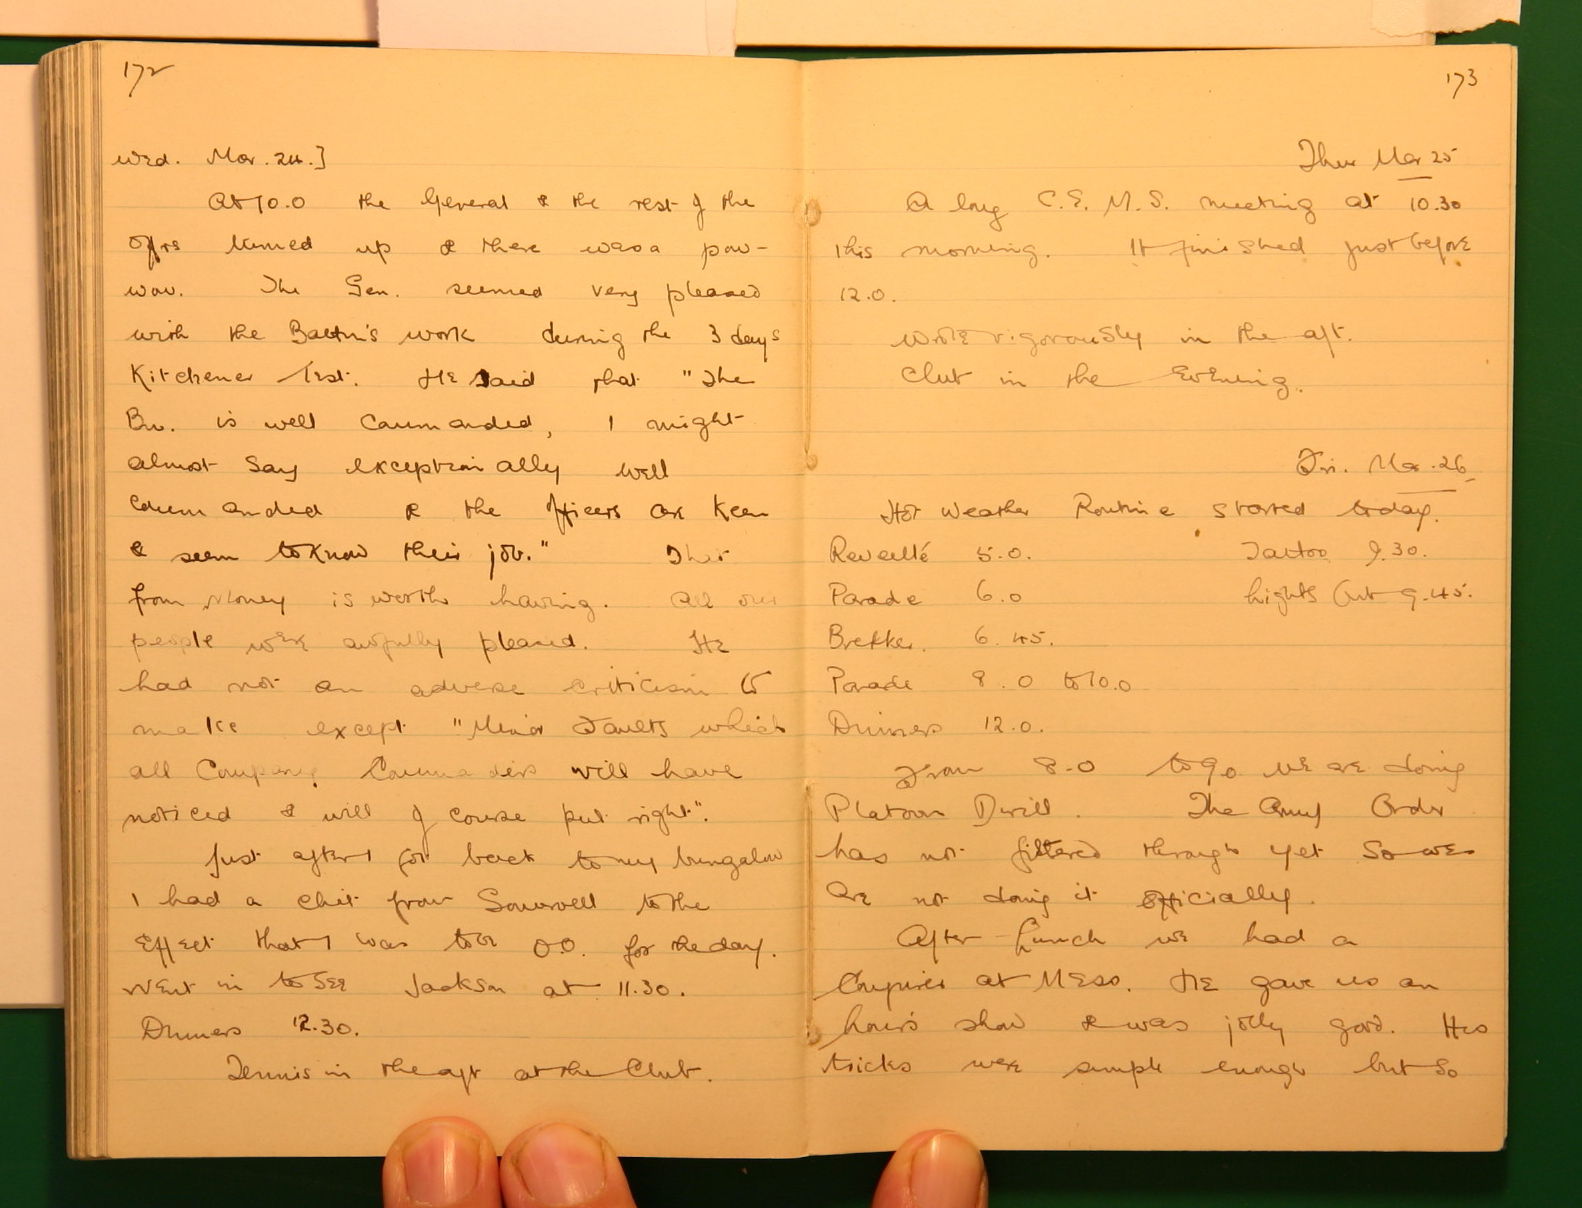 172
Wed. Mar. 24.]
At 10.0 the General & the rest of the
offrs turned up & there was a pow-
wow. The Gen. seemed very pleased
with the Battn's work during the 3 days
Kitchener Test. He said that "The
Bn. is well commanded, I might
almost say exceptionally well
commanded & the officers are keen
& seem to know their job." This
from Money is worth having. All our
people were awfully pleased. He
had not an adverse criticism to
make except "Minor Faults which
all Company Commanders will have
noticed & will of course put right".
Just after I got back to my bungalow
I had a chit from Somervell to the
Effect that I was to be O.O. for the day.
Went in to see Jackson at 11.30.
Dinners 12.30.
Tennis in the aft at the Club.
173
Thur Mar 25
A long C.E.M.S. meeting at 10.30
this morning. It finished just before
12.0.
Wrote vigorously in the aft.
Club in the Evening.
Fri. Mar. 26
Hot Weather Routine started today.
Reveillé 5.0. Tattoo 9.30.
Parade 6.0 Lights Out 9.45.
Brekker. 6.45.
Parade 8.0 to 10.0
Dinners 12.0.
From 8.0 to 9.0 we are doing
Platoon Drill. The Army Order
has not filtered through yet so we
are not doing it officially.
After Lunch we had a
Conjurer at Mess. He gave us an
hour's show & was jolly good. His
tricks were simple enough but so